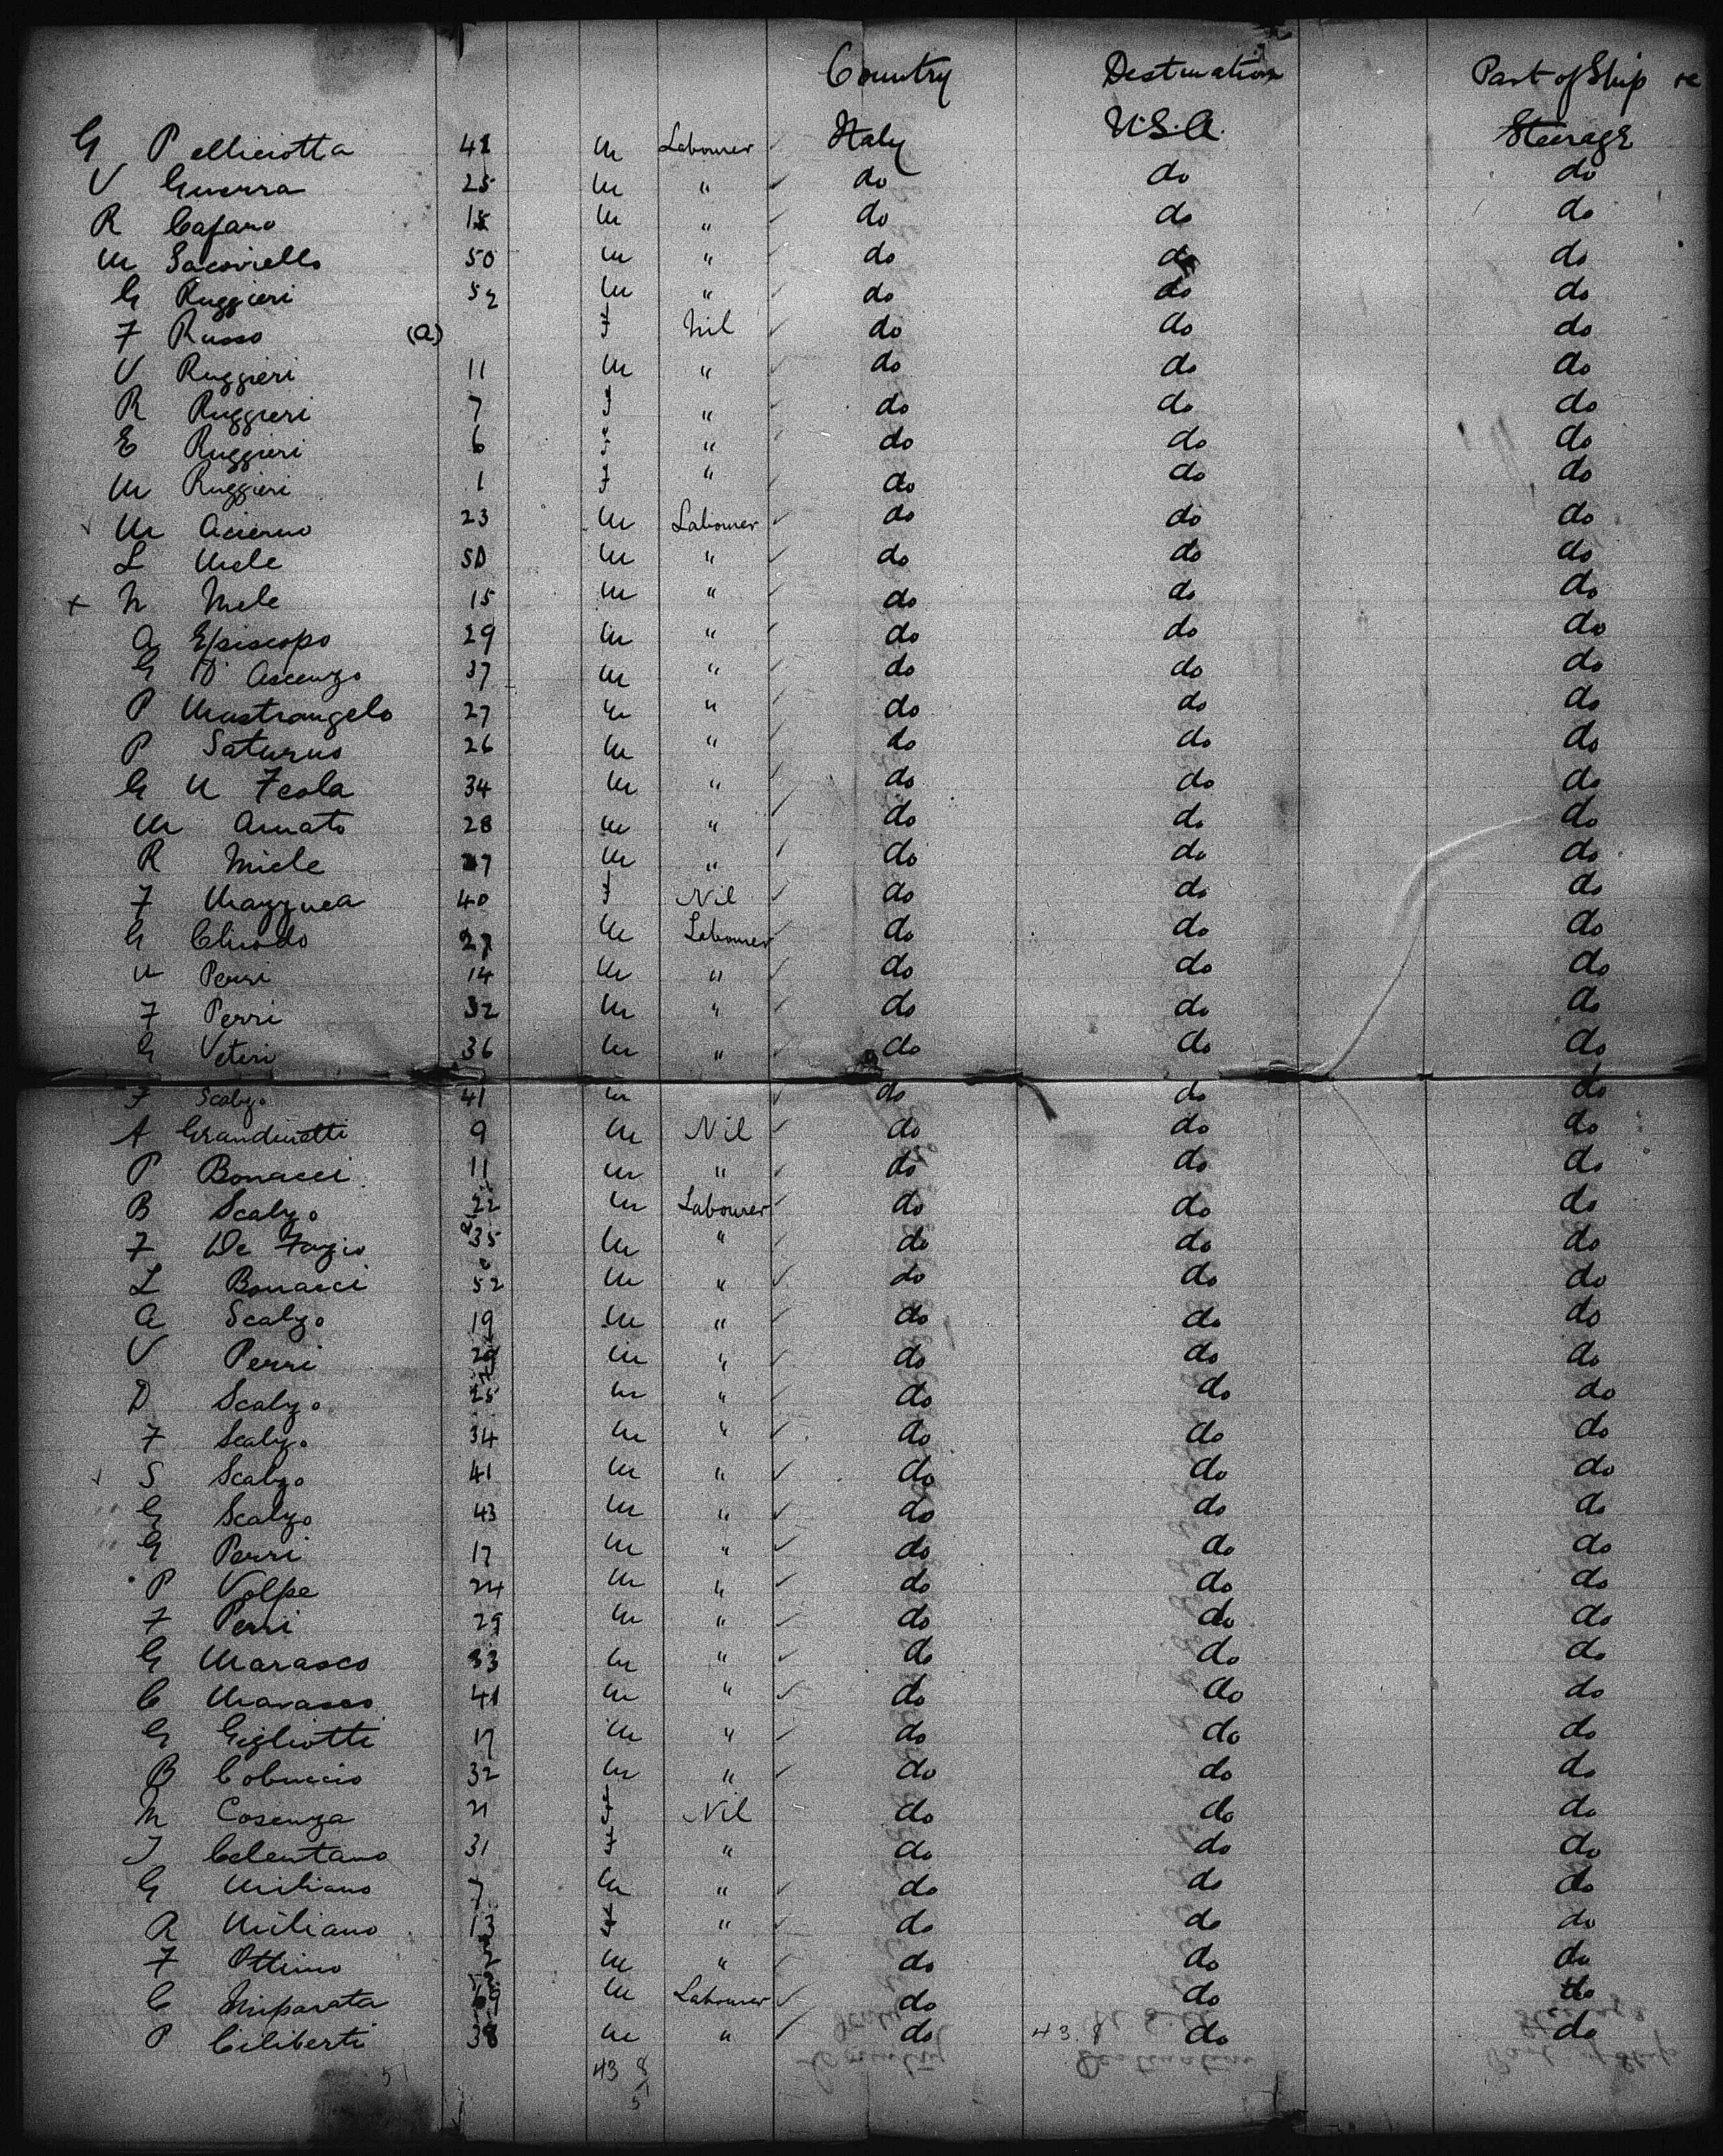 Country Destination Part of Ship
G Pelliciotta 42 M Labourer Italy U.S.A. Steerage
V Guerra 25 M " do do do
R Cafaro 15 M " do do do
M Iacoviello 50 M " do do do
G Ruggieri 52 M " do do do
F Russo (a) F Nil do do do
V Ruggieri 11 M " do do do
R Ruggieri 7 F " do do do
E Ruggieri 6 F " do do do
M Ruggieri 1 F " do do do
M Acierno 23 M Labourer do do do
L Mele 50 M " do do do
N Mele 15 M " do do do
A Episcopo 29 M " do do do
G D'Ascenzo 37 M " do do do
P Mastrangelo 27 M " do do do
P Saturno 26 M " do do do
G M Feola 34 M " do do do
M Amato 28 M " do do do
R Miele 27 M " do do do
F 40 F Nil do do do
G Chiodo 27 M Labourer do do do
M Perri 14 M " do do do
F Perri 32 M " do do do
G Veteri 36 M " do do do
F Scalzo 41 M do do do
A Grandinetti 9 M Nil do do do
P Bonacci 11 M " do do do
B Scalzo 22 M Labourer do do do
F De Fazio 35 M " do do do
L Bonacci 52 M " do do do
A Scalzo 19 M " do do do
V Perri M " do do do
D Scalzo 25 M " do do do
F Scalzo 34 M " do do do
S Scalzo 41 M " do do do
G Scalzo 43 M " do do do
G Perri 17 M " do do do
P Volpe 24 M " do do do
F Perri 29 M " do do do
G Marasco 33 M " do do do
C Marasco 41 M " do do do
G Gigliotti 17 M " do do do
B Cobuccio 32 M " do do do
M Cosenza 21 F Nil do do do
I Celentano 31 F " do do do
G Miliano 7 M " do do do
R Miliano 13 F " do do do
F Ottimo 2 M " do do do
C Imparata M Labourer do do do
P Ciliberti 38 M " do 43.8 do do
51 43 8
51